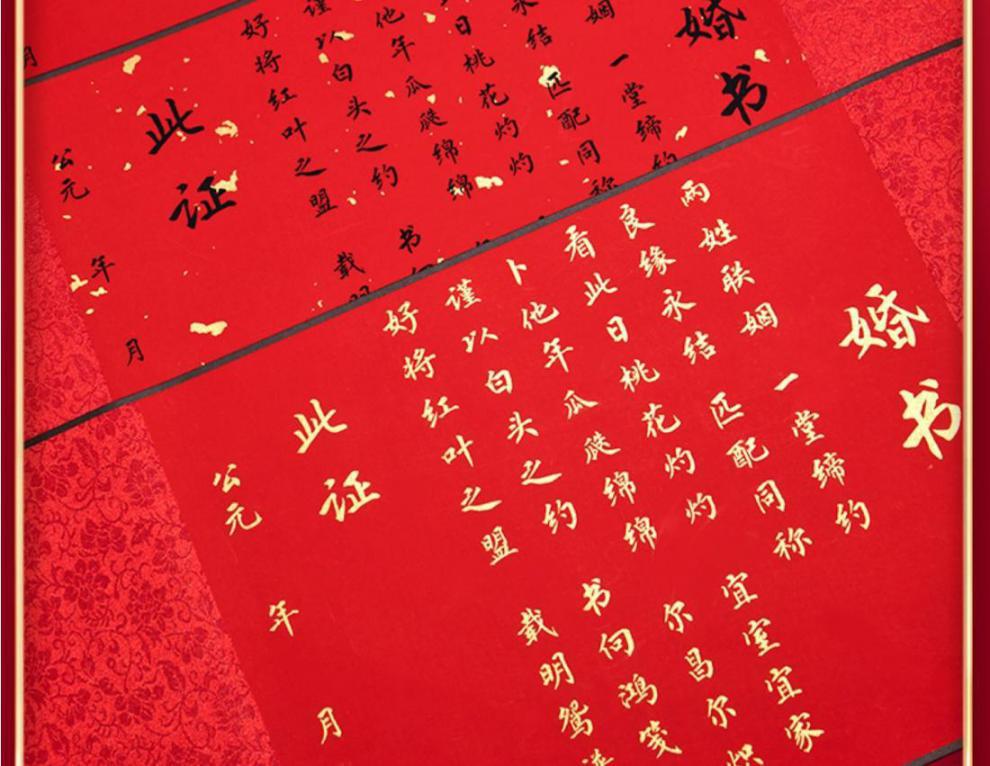 月
婚书
姻 一堂缔
永结 匹配同
日桃花灼灼
他年瓜瓞绵绵
谨以白头之约 书
好将红叶之盟 载
此证
公元 年 月
婚书
两姓联姻 一堂缔约
良缘永结 匹配同称
看此日桃花灼灼 宜室宜家
卜他年瓜瓞绵绵 尔昌尔炽
谨以白头之约 书向鸿笺
好将红叶之盟 载明鸳
此证
公元 年 月